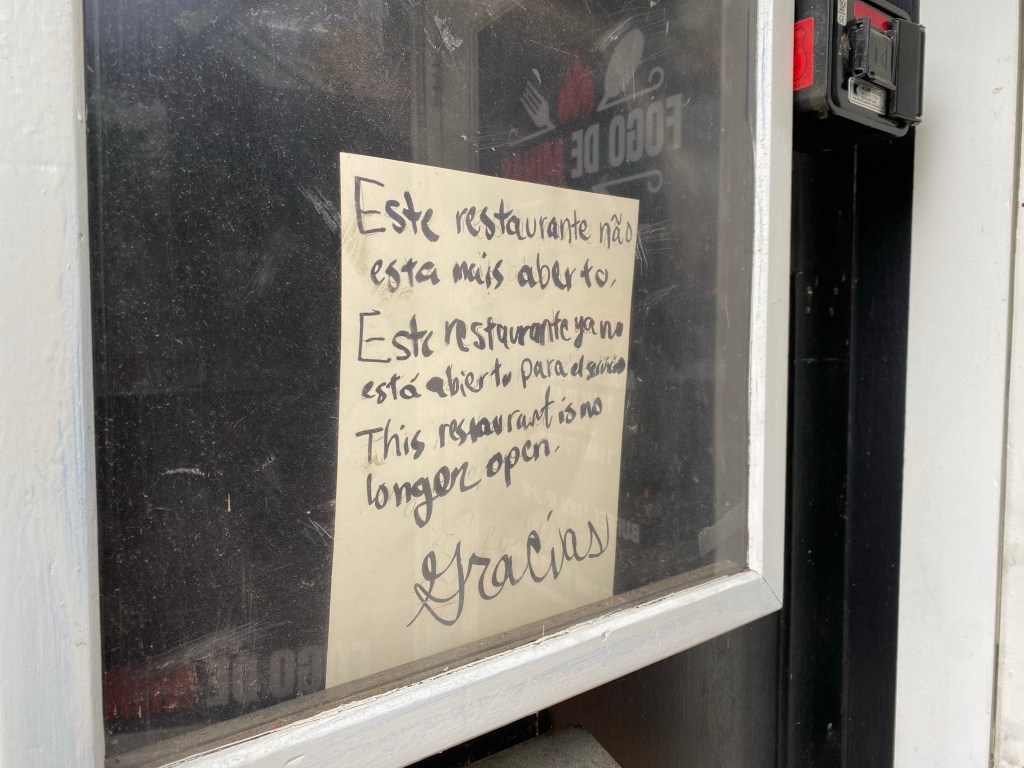 FOGO DE
Este restaurante não
esta mais aberto.
Este restaurante ya no
está abierto para el servicio
This restaurant is no
longer open.
Gracias
FOGO DE